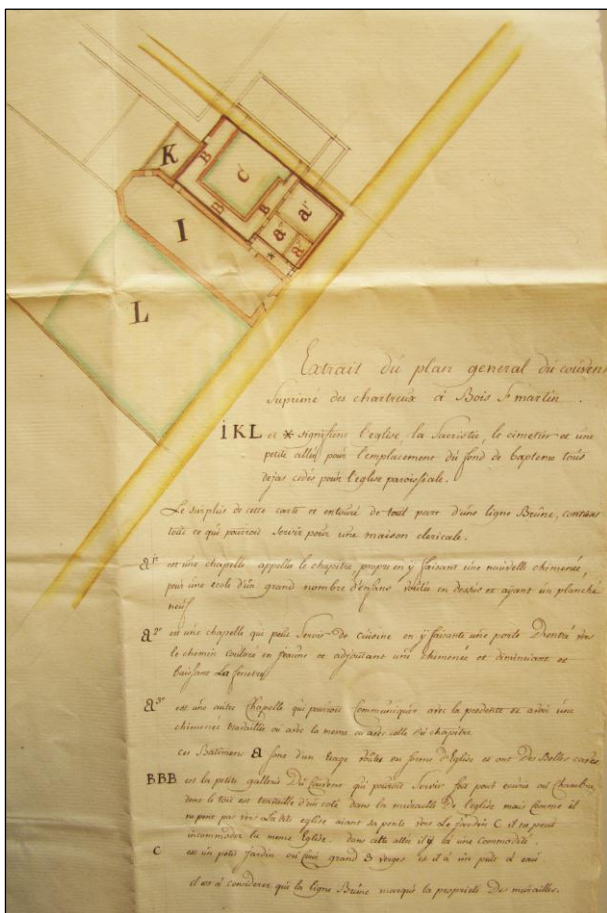 K
B
C
B
B
I
a 1r
a 2r
a 3r
*
L
Extrait du plan general du couven
Suprimé des chartreux à Bois St martin.
IKL et * signifient l'eglise, la Sacristie, le cimetier et une
petite allée pour l'emplacement du fond de bapteme tous
dejas cedés pour l'eglise paroissiale.
Le surplus de cette carte et entouré de tout part d'une ligne Brûne, contient
tout ce qui pourroit servir pour une maison clericale.
a 1r est une chapelle appellée le chapitre propre en ÿ faisant une nouvelle cheminée,
pour une ecole d'un grand nombre d'enfans voûtée en dessus et aÿant un planché
neuf
a 2r est une chapelle qui peut servir de cuisine en ÿ faisante une porte D'entré vers
le chemin couleur en jeaune et adjoutant une cheminée et diminuant et
baissant La fenetre
a 3r est une autre Chapelle qui pourroit Communiquer avec la precedente et avoir une
cheminée travaillée où avec la meme ou avec celle du chapitre
ces Batimens a sont d'un etage voûtés en forme d'Eglise et ont Des Belles caves
BBB est la petite gallerie Du Couvent qui pouroit Servir pour ou Chambre
dont le toit est travaillé d'un coté dans la muraille De l'eglise mais Comme il
repose pas vers La dite eglise aiant sa pente vers Le jardin C il ne peut
incommoder la meme Eglise. dans cette allée il ÿ a une commodité.
C est un petit Jardin grand 3 verges et il a un puit à eau
il est à considerer que la ligne Brûne marque la proprieté Des murailles.